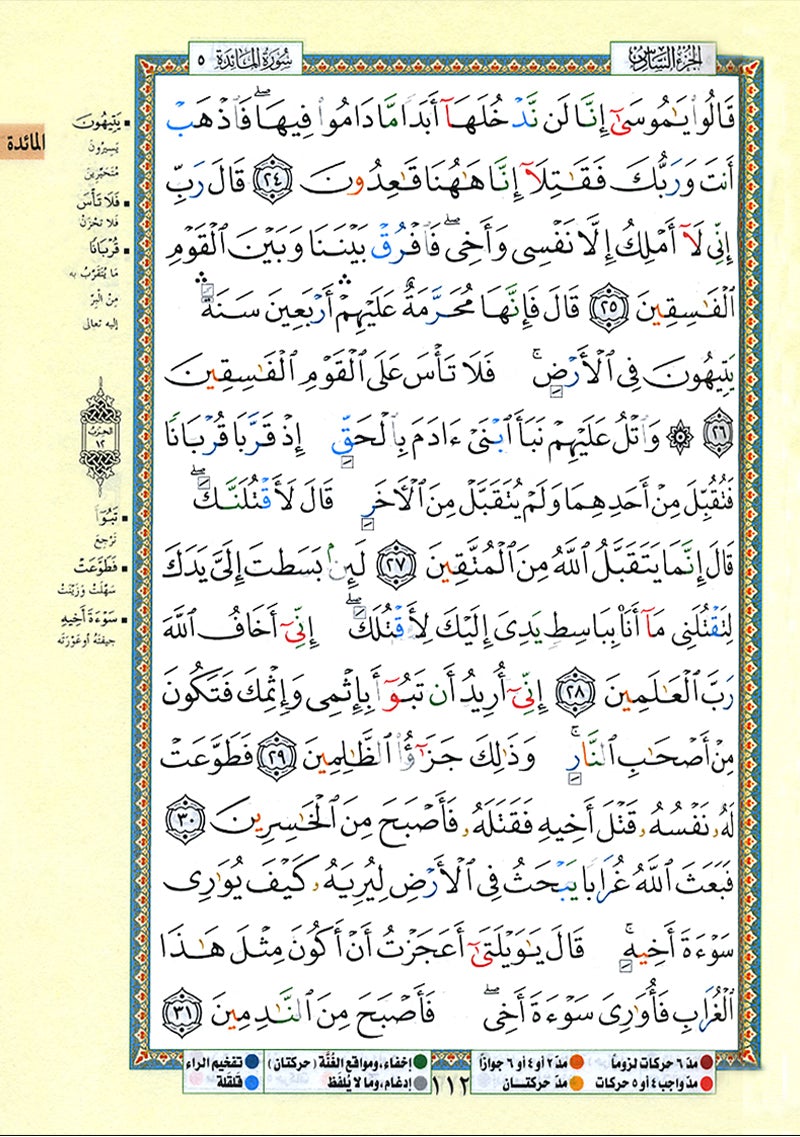 الجزء السادس
سورة المائدة ٥
المائدة
قَالُوا۟ يَـٰمُوسَىٰٓ إِنَّا لَن نَّدْخُلَهَآ أَبَدًا مَّا دَامُوا۟ فِيهَا ۖ فَٱذْهَبْ
أَنتَ وَرَبُّكَ فَقَـٰتِلَآ إِنَّا هَـٰهُنَا قَـٰعِدُونَ ٢٤ قَالَ رَبِّ
إِنِّى لَآ أَمْلِكُ إِلَّا نَفْسِى وَأَخِى ۖ فَٱفْرُقْ بَيْنَنَا وَبَيْنَ ٱلْقَوْمِ
ٱلْفَـٰسِقِينَ ٢٥ قَالَ فَإِنَّهَا مُحَرَّمَةٌ عَلَيْهِمْ ۛ أَرْبَعِينَ سَنَةً ۛ
يَتِيهُونَ فِى ٱلْأَرْضِ ۚ فَلَا تَأْسَ عَلَى ٱلْقَوْمِ ٱلْفَـٰسِقِينَ
٢٦ ۞ وَٱتْلُ عَلَيْهِمْ نَبَأَ ٱبْنَىْ ءَادَمَ بِٱلْحَقِّ إِذْ قَرَّبَا قُرْبَانًا
فَتُقُبِّلَ مِنْ أَحَدِهِمَا وَلَمْ يُتَقَبَّلْ مِنَ ٱلْـَٔاخَرِ قَالَ لَأَقْتُلَنَّكَ ۖ
قَالَ إِنَّمَا يَتَقَبَّلُ ٱللَّهُ مِنَ ٱلْمُتَّقِينَ ٢٧ لَئِنۢ بَسَطتَ إِلَىَّ يَدَكَ
لِتَقْتُلَنِى مَآ أَنَا۠ بِبَاسِطٍ يَدِىَ إِلَيْكَ لِأَقْتُلَكَ ۖ إِنِّىٓ أَخَافُ ٱللَّهَ
رَبَّ ٱلْعَـٰلَمِينَ ٢٨ إِنِّىٓ أُرِيدُ أَن تَبُوٓأَ بِإِثْمِى وَإِثْمِكَ فَتَكُونَ
مِنْ أَصْحَـٰبِ ٱلنَّارِ ۚ وَذَٰلِكَ جَزَٰٓؤُا۟ ٱلظَّـٰلِمِينَ ٢٩ فَطَوَّعَتْ
لَهُۥ نَفْسُهُۥ قَتْلَ أَخِيهِ فَقَتَلَهُۥ فَأَصْبَحَ مِنَ ٱلْخَـٰسِرِينَ ٣٠
فَبَعَثَ ٱللَّهُ غُرَابًا يَبْحَثُ فِى ٱلْأَرْضِ لِيُرِيَهُۥ كَيْفَ يُوَٰرِى
سَوْءَةَ أَخِيهِ ۚ قَالَ يَـٰوَيْلَتَىٰٓ أَعَجَزْتُ أَنْ أَكُونَ مِثْلَ هَـٰذَا
ٱلْغُرَابِ فَأُوَٰرِىَ سَوْءَةَ أَخِى ۖ فَأَصْبَحَ مِنَ ٱلنَّـٰدِمِينَ ٣١
▪ يَتِيهُونَ
يَسِيرُونَ
مُتَحَيِّرِينَ
▪ فَلَا تَأْسَ
فلا تحزَنْ
▪ قُرْبَانًا
ما يُتَقَرَّبُ به
مِنَ البِرِّ
إليه تعالى
الحزب
١٢
▪ تَبُوٓأَ
تَرْجِعَ
▪ فَطَوَّعَتْ
سَهَّلَتْ وَزَيَّنَتْ
▪ سَوْءَةَ أَخِيهِ
جيفتَهُ أو عَوْرَتَه
مدّ ٦ حركات لزوماً
مدّ ٢ أو ٤ أو ٦ جوازاً
إخفاء، ومواقع الغُنَّة (حركتان)
تفخيم الراء
مدّ واجب ٤ أو ٥ حركات
مدّ حركتــان
١١٢
إدغام، وما لا يُلفَظ
قلقلة